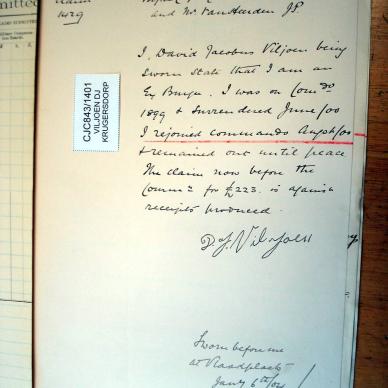 mitted
1429
and Mr Van Heerden JP
CJC843/1401
VILJOEN DJ
KRUGERSDORP
I, David Jacobus Viljoen being
sworn state that I am an
Ex Burgher. I was on Com^do
1899 & surrendered June/00
I rejoined commando Augst/00
& remained out until peace
The claim now before the
Comm^n for £223. is against
receipts produced.
D. J. Viljoen
Sworn before me
at
Jany 6th/04